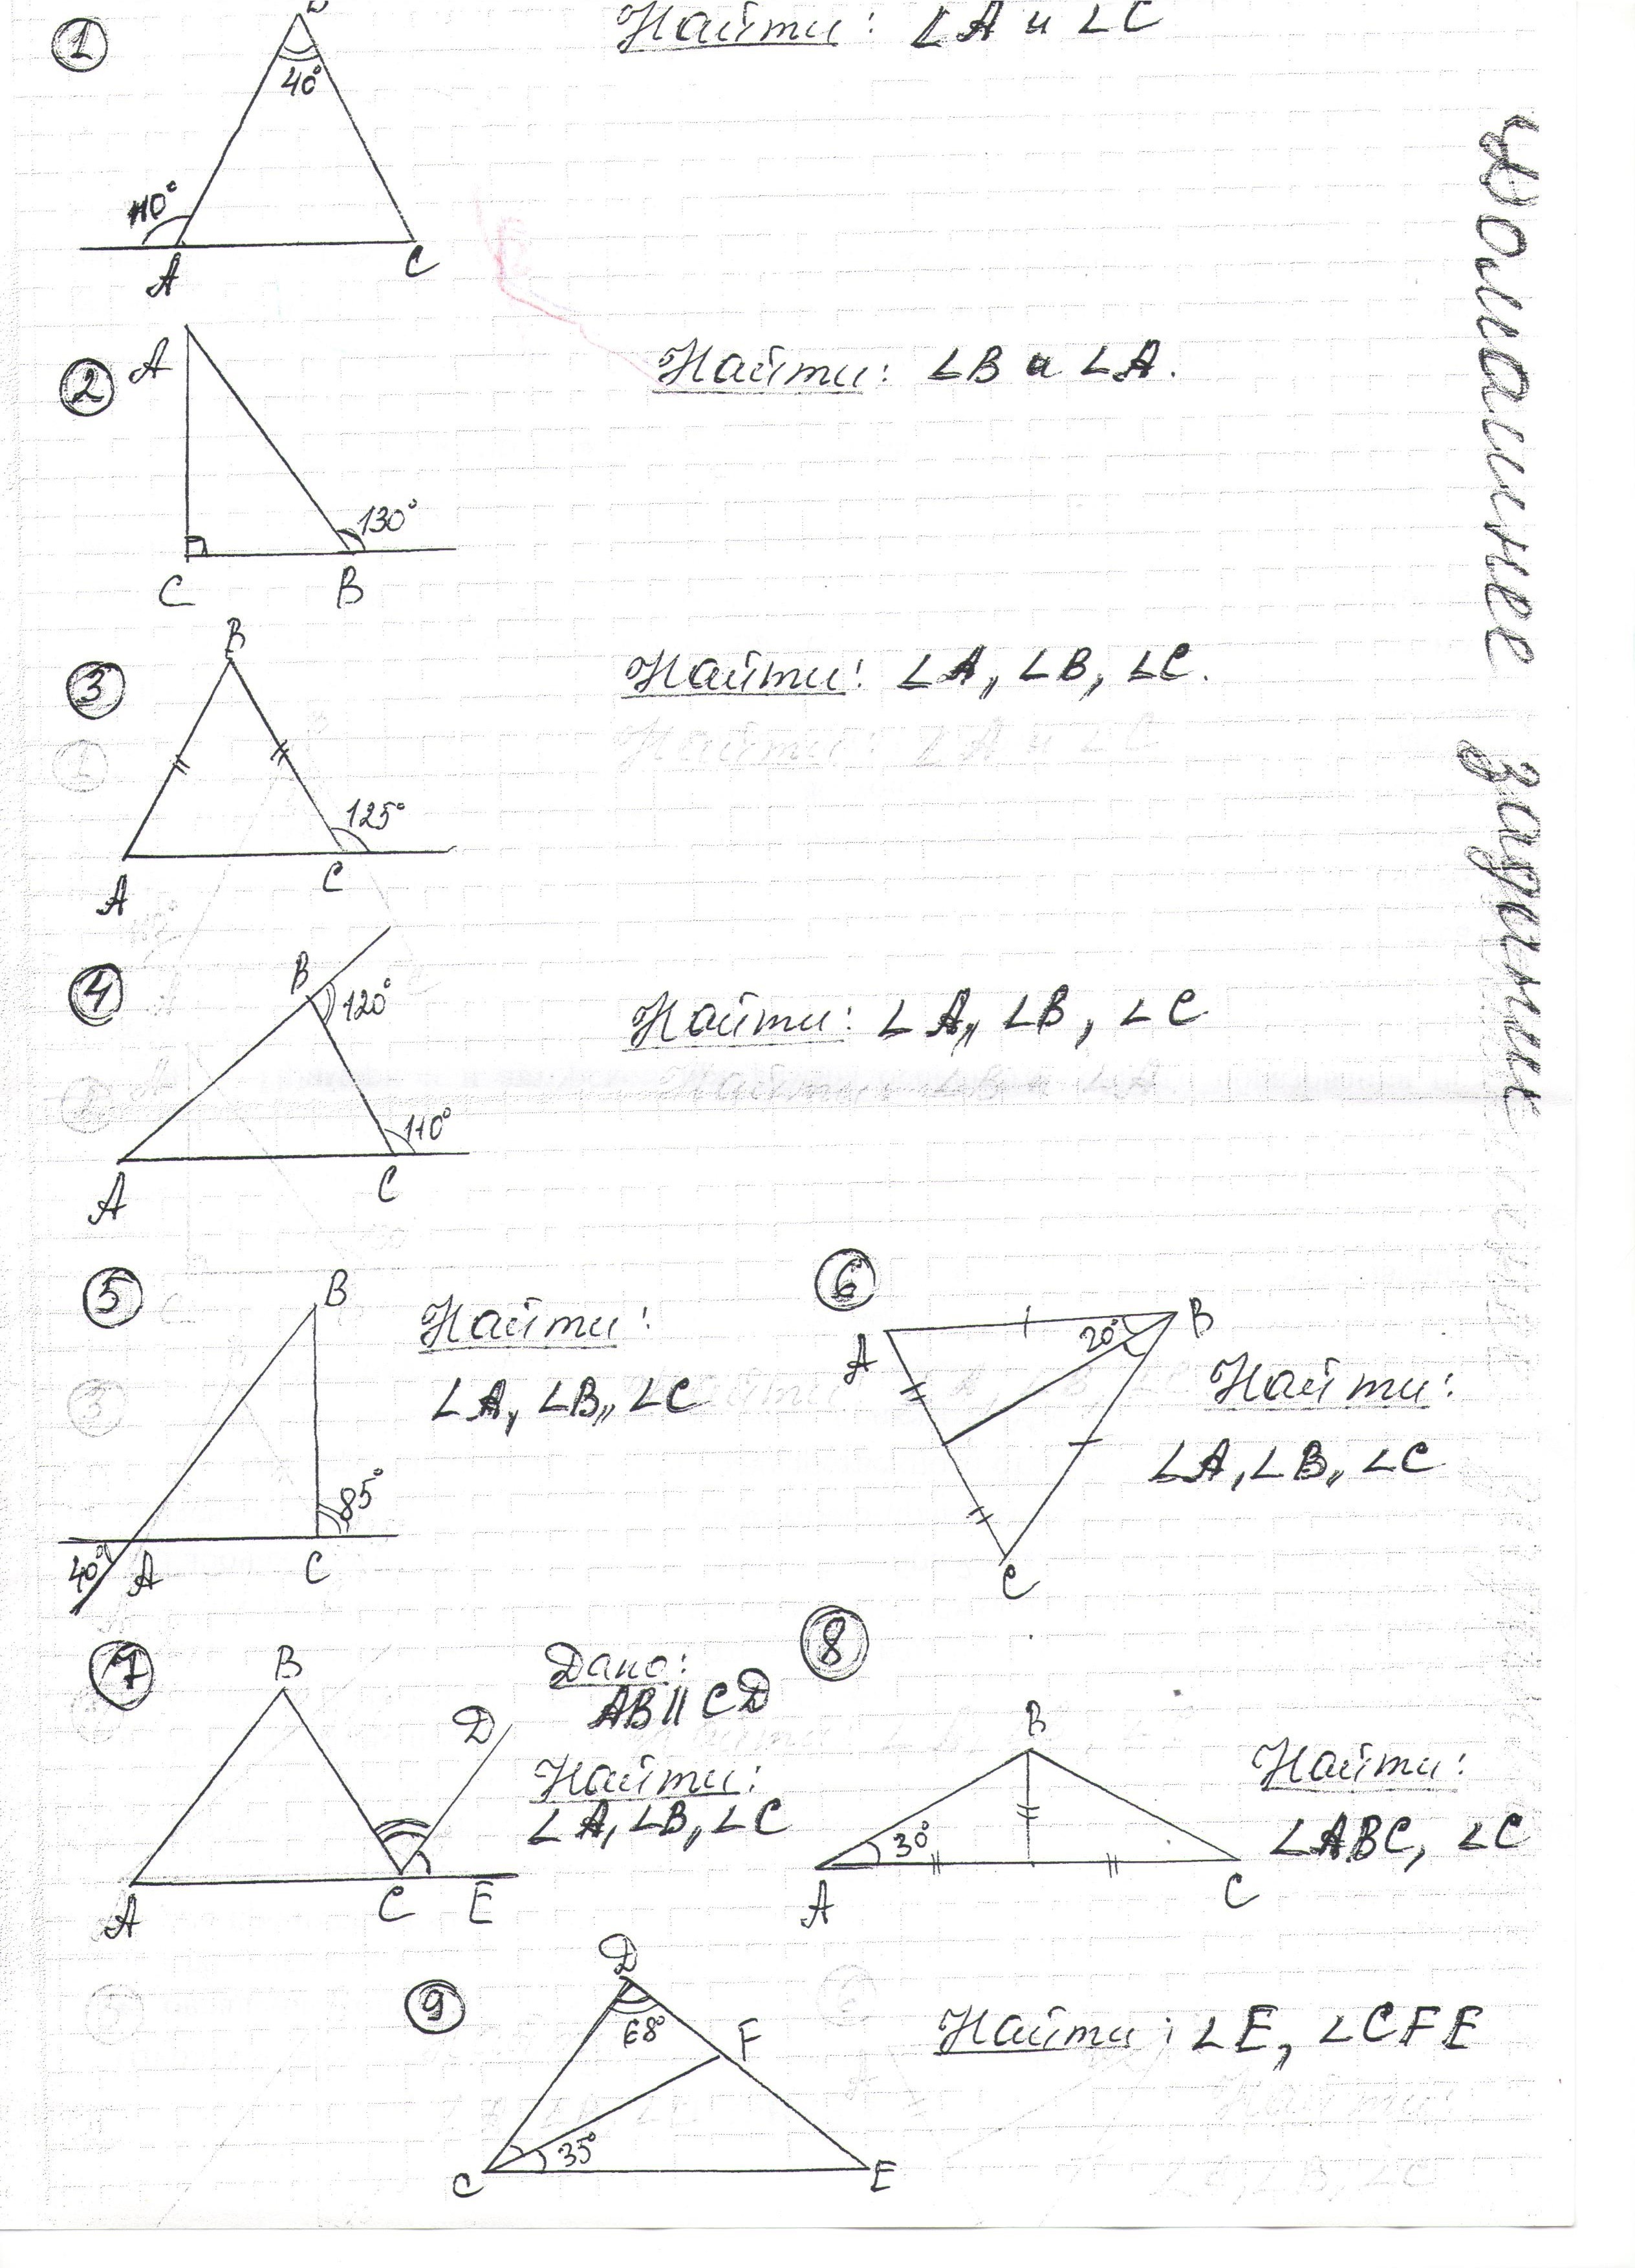 1
Найти: ∠A и ∠C
40°
110°
A
C
2
A
Найти: ∠B и ∠A.
130°
C
B
3
B
Найти: ∠A, ∠B, ∠C.
125°
A
C
4
B
120°
Найти: ∠A, ∠B, ∠C
110°
A
C
5
B
Найти:
∠A, ∠B, ∠C
85°
40°
A
C
6
A
20°
B
Найти:
∠A, ∠B, ∠C
C
7
B
D
Дано:
AB || CD
Найти:
∠A, ∠B, ∠C
A
C
E
8
B
30°
Найти:
∠ABC, ∠C
A
C
9
D
68°
F
Найти: ∠E, ∠CFE
35°
C
E
Домашнее задание